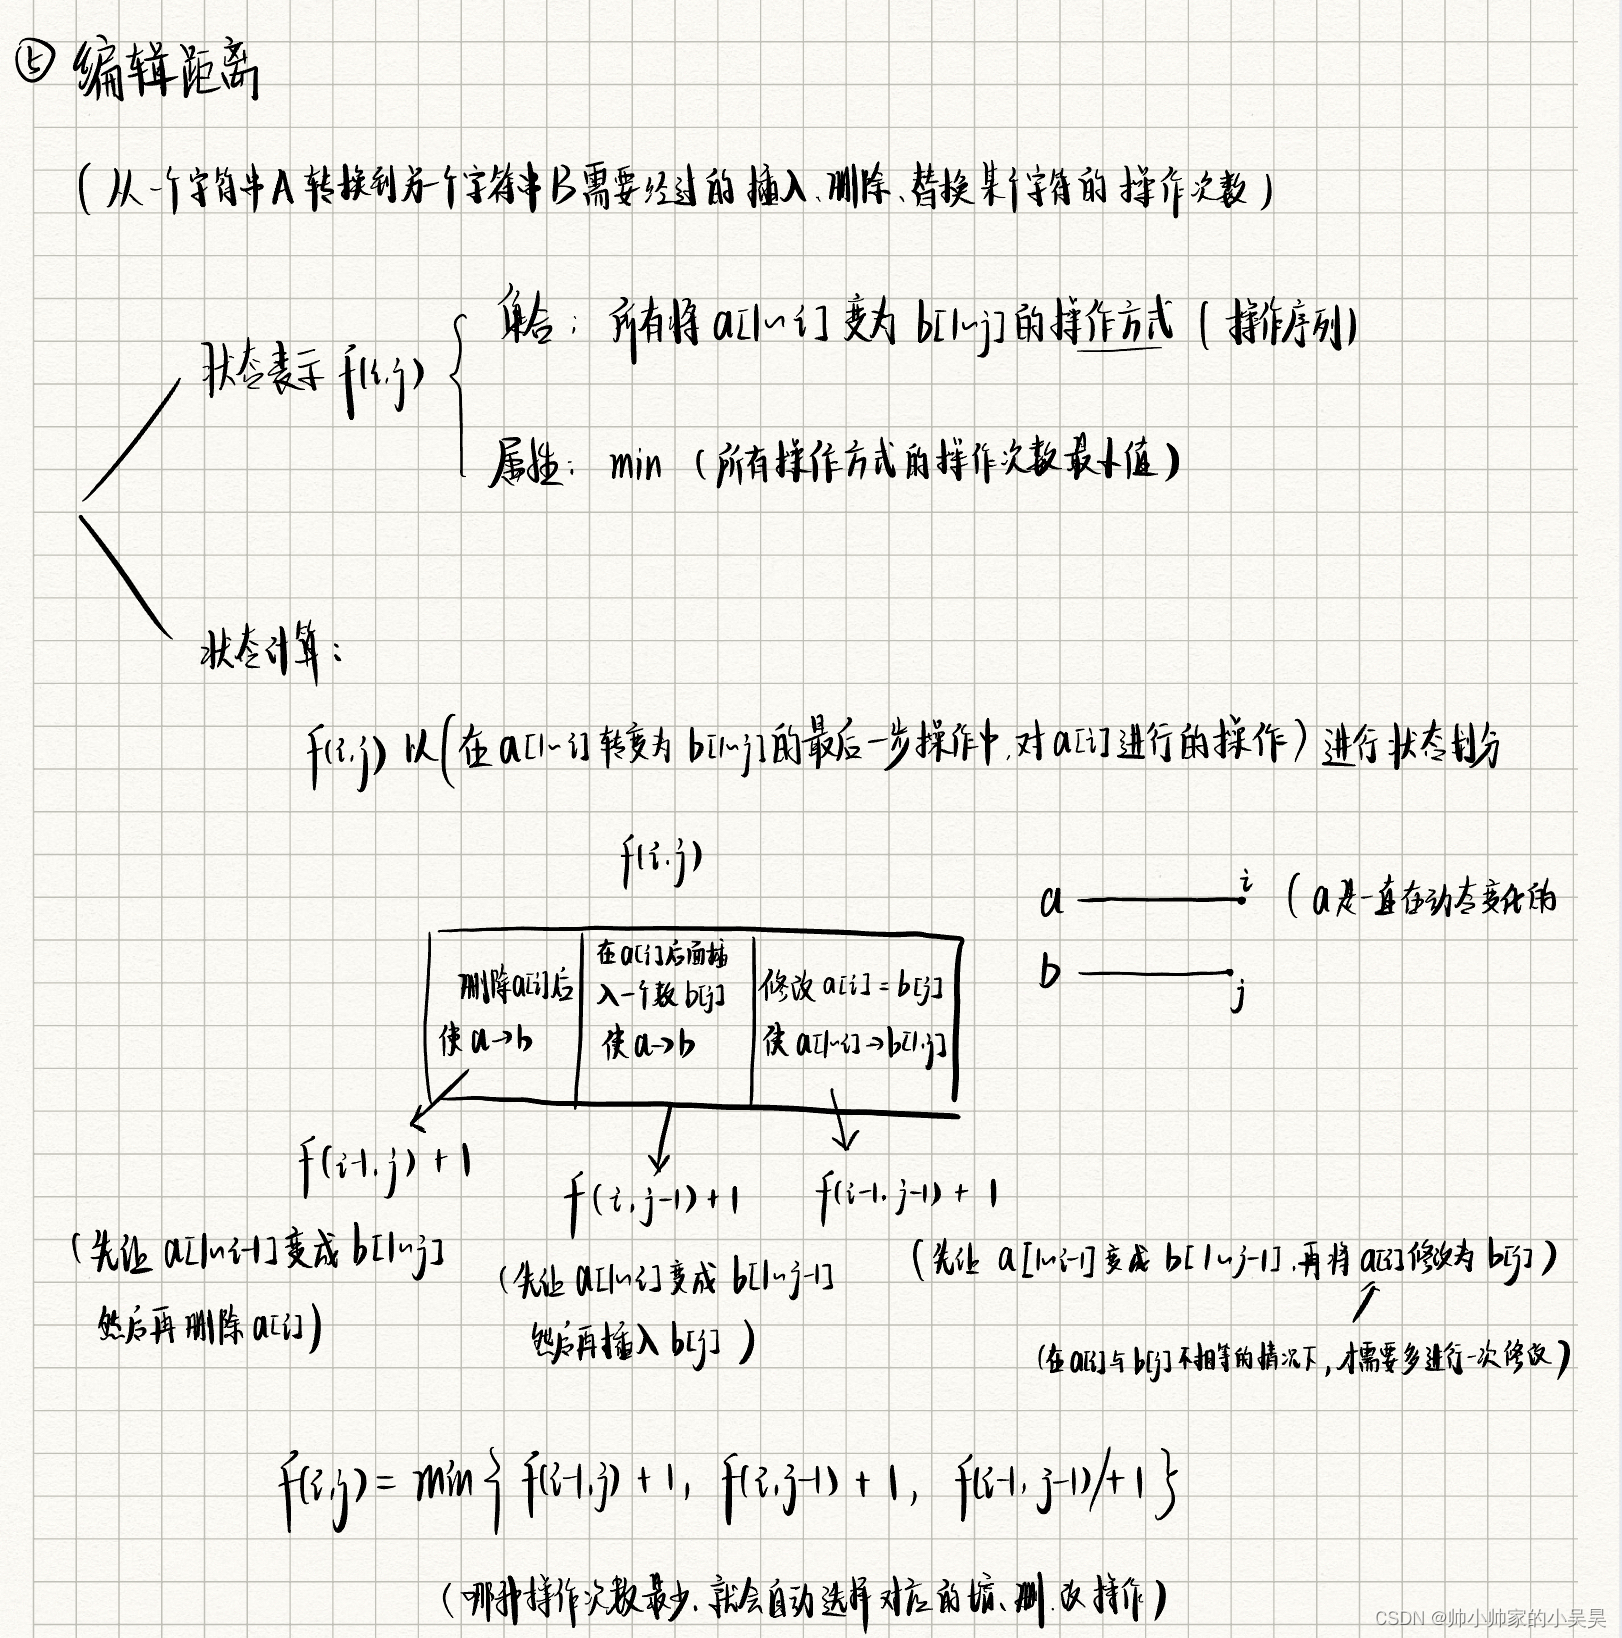 ⑤ 编辑距离
(从一个字符串A转换到另一个字符串B需要经过的插入、删除、替换某个字符的操作次数)
集合：所有将a[1~i]变为b[1~j]的操作方式(操作序列)
状态表示f(i,j)
属性：min (所有操作方式的操作次数最小值)
状态计算：
f(i,j) 以(在a[1~i]转变为b[1~j]的最后一步操作中,对a[i]进行的操作)进行状态划分
f(i,j)
a i (a是一直在动态变化的
b j
删除a[i]后
使a→b
在a[i]后面插
入一个数b[j]
使a→b
修改a[i]=b[j]
使a[1~i]→b[1~j]
f(i-1,j)+1
f(i,j-1)+1
f(i-1,j-1)+1
(先让a[1~i-1]变成b[1~j]
然后再删除a[i])
(先让a[1~i]变成b[1~j-1]
然后再插入b[j])
(先让a[1~i-1]变成b[1~j-1],再将a[i]修改为b[j])
(在a[i]与b[j]不相等的情况下,才需要多进行一次修改)
f(i,j)=min{f(i-1,j)+1, f(i,j-1)+1, f(i-1,j-1)/+1}
(哪种操作次数最少,就会自动选择对应的增、删、改操作)
CSDN @帅小帅家的小吴昊